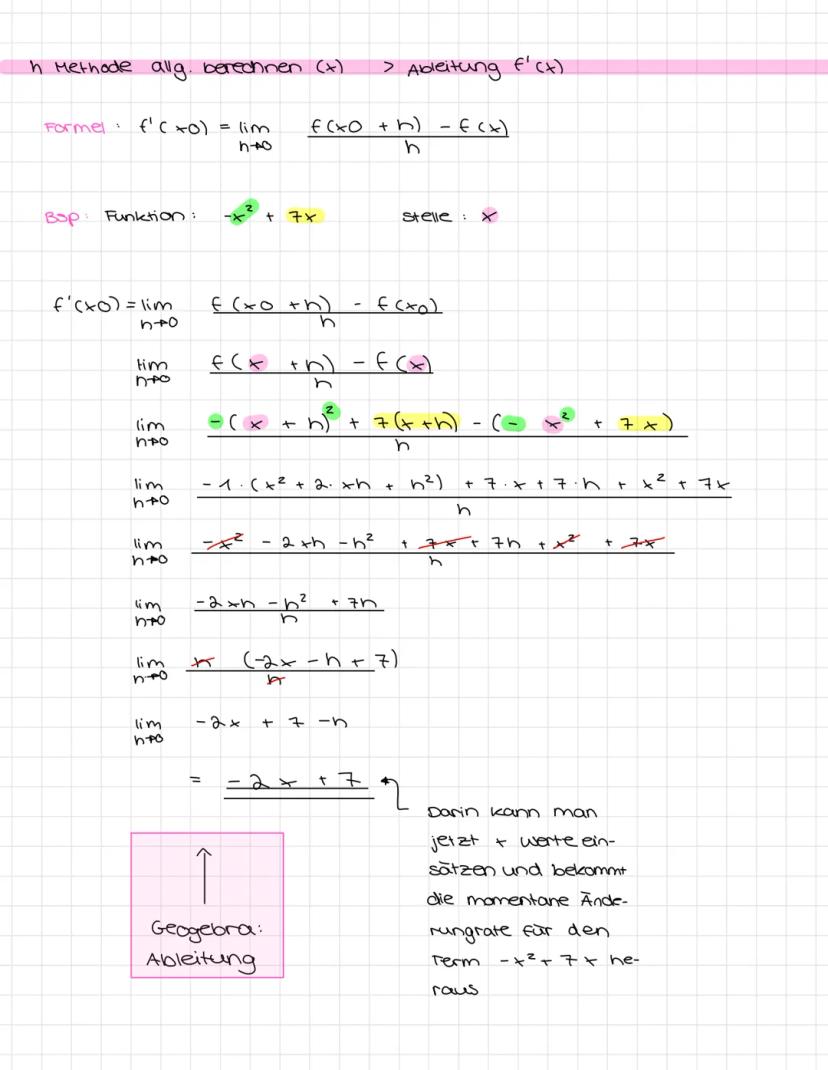 h Methode allg. berechnen (x) > Ableitung f'(x)
Formel: f'(x0) = lim h→0 f(x0 + h) - f(x) / h
Bsp: Funktion: -x² + 7x Stelle: x
f'(x0) = lim h→0 f(x0 + h) - f(x0) / h
lim h→0 f(x + h) - f(x) / h
lim h→0 -(x + h)² + 7(x+h) - (- x² + 7x) / h
lim h→0 -1·(x² + 2·xh + h²) + 7·x + 7·h + x² + 7x / h
lim h→0 -x² - 2xh - h² + 7x + 7h + x² + 7x / h
lim h→0 -2xh - h² + 7h / h
lim h→0 h (-2x - h + 7) / h
lim h→0 -2x + 7 - h
= -2x + 7
Darin kann man
jetzt x werte ein-
sätzen und bekommt
die momentane Ände-
rungrate für den
Term -x² + 7x he-
raus
Geogebra:
Ableitung